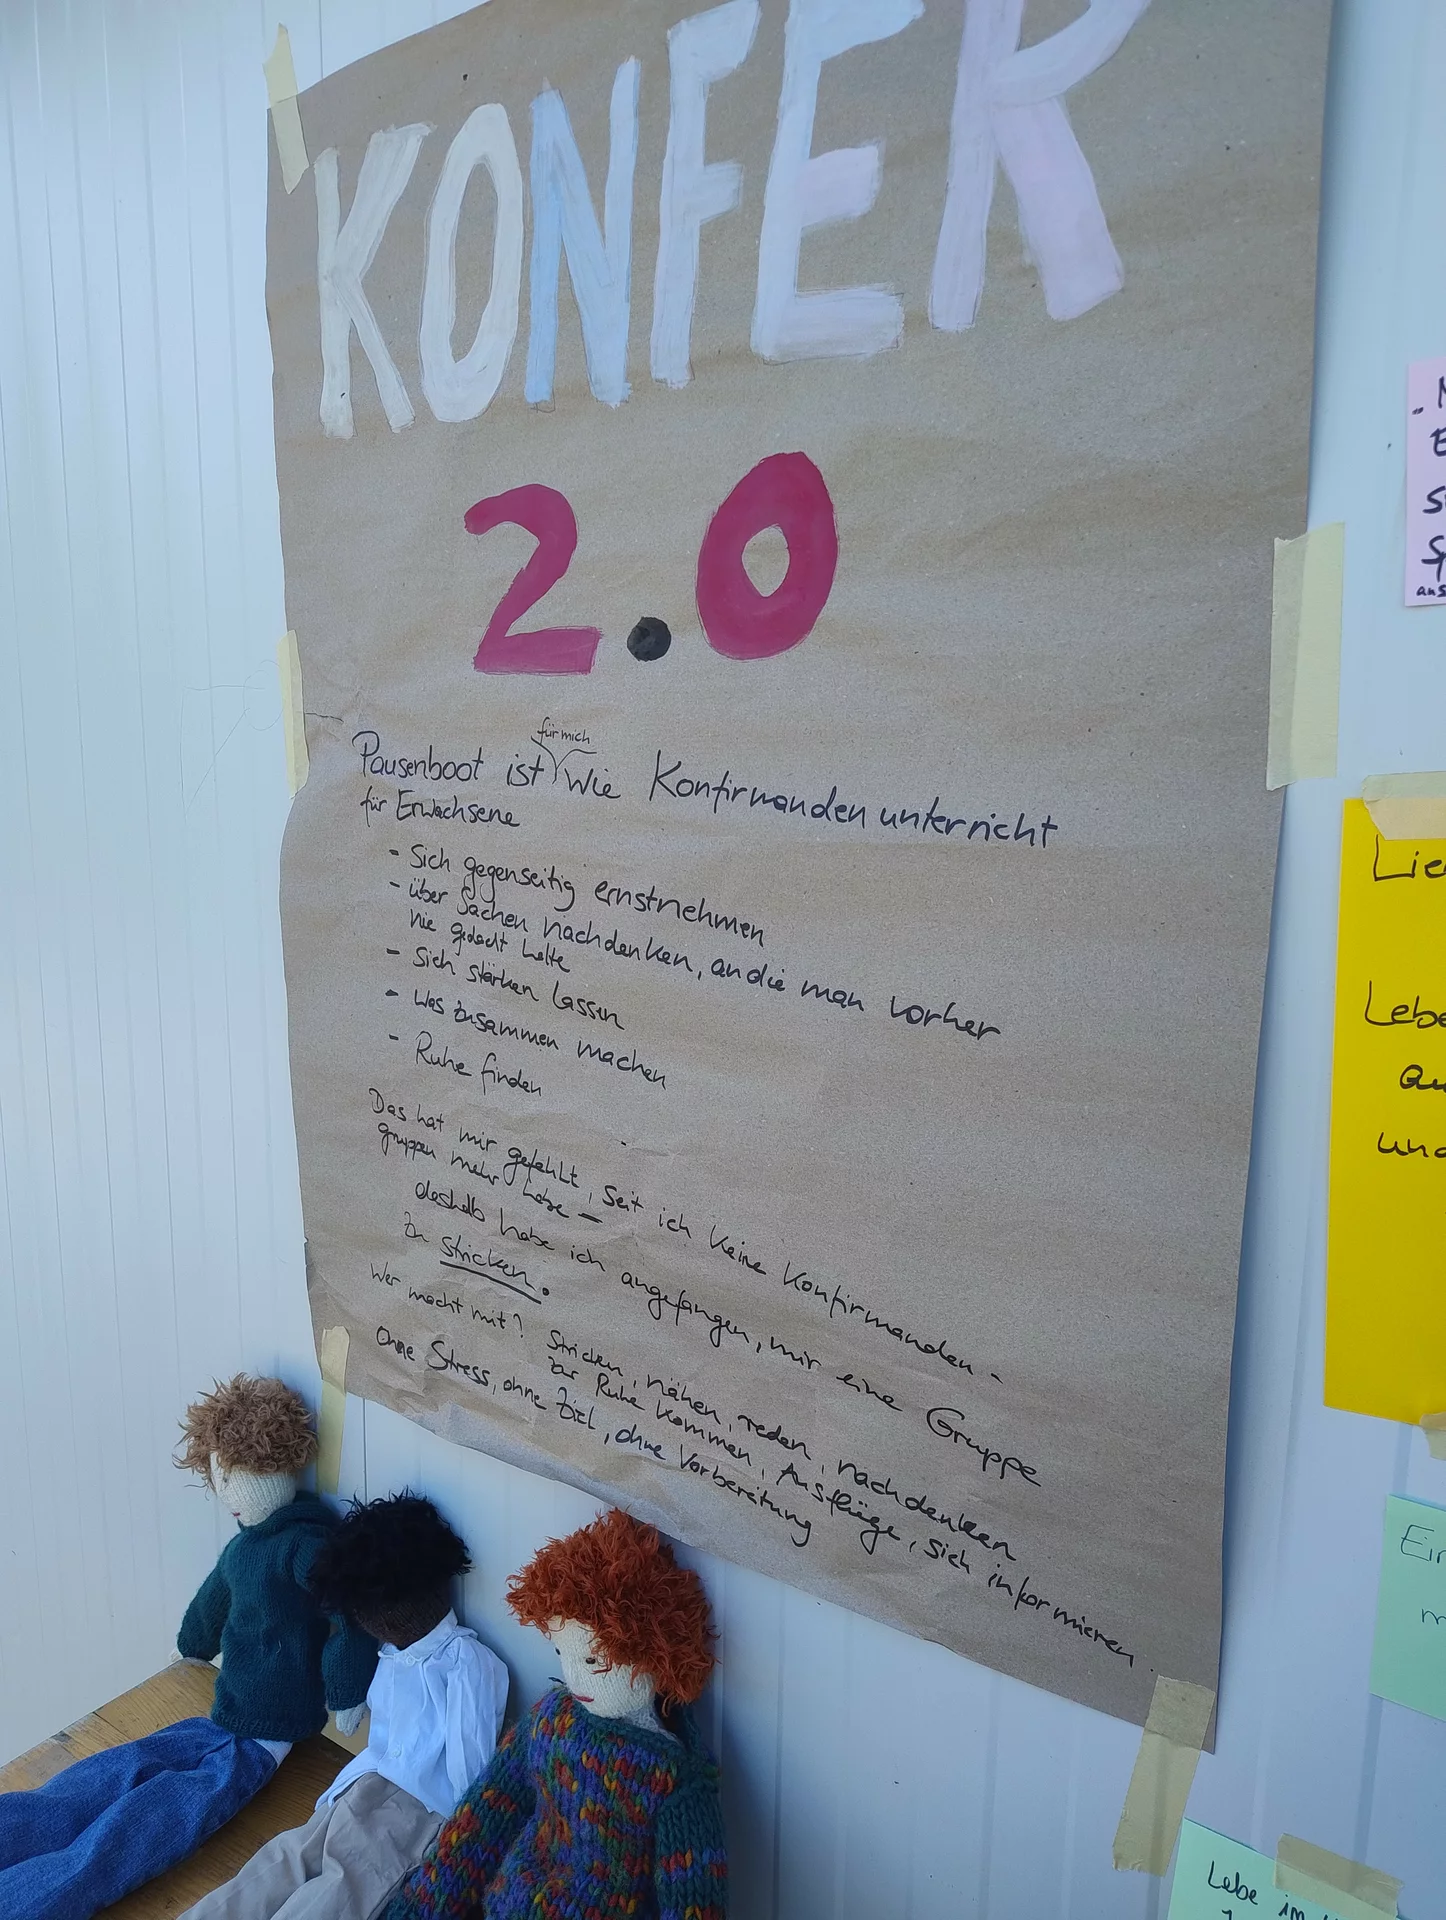 KONFER
2.0
Pausenboot ist für mich wie Konfirmandenunterricht
für Erwachsene
- Sich gegenseitig ernstnehmen
- über Sachen nachdenken, an die man vorher
nie gedacht hätte
- Sich stärken lassen
- Was zusammen machen
- Ruhe finden
Das hat mir gefehlt, seit ich keine Konfirmanden-
gruppen mehr habe –
deshalb habe ich angefangen, mir eine Gruppe
zu stricken.
Wer macht mit? Stricken, nähen, reden, nachdenken
zur Ruhe kommen, Ausflüge, sich informieren
Ohne Stress, ohne Ziel, ohne Vorbereitung
Lebe im